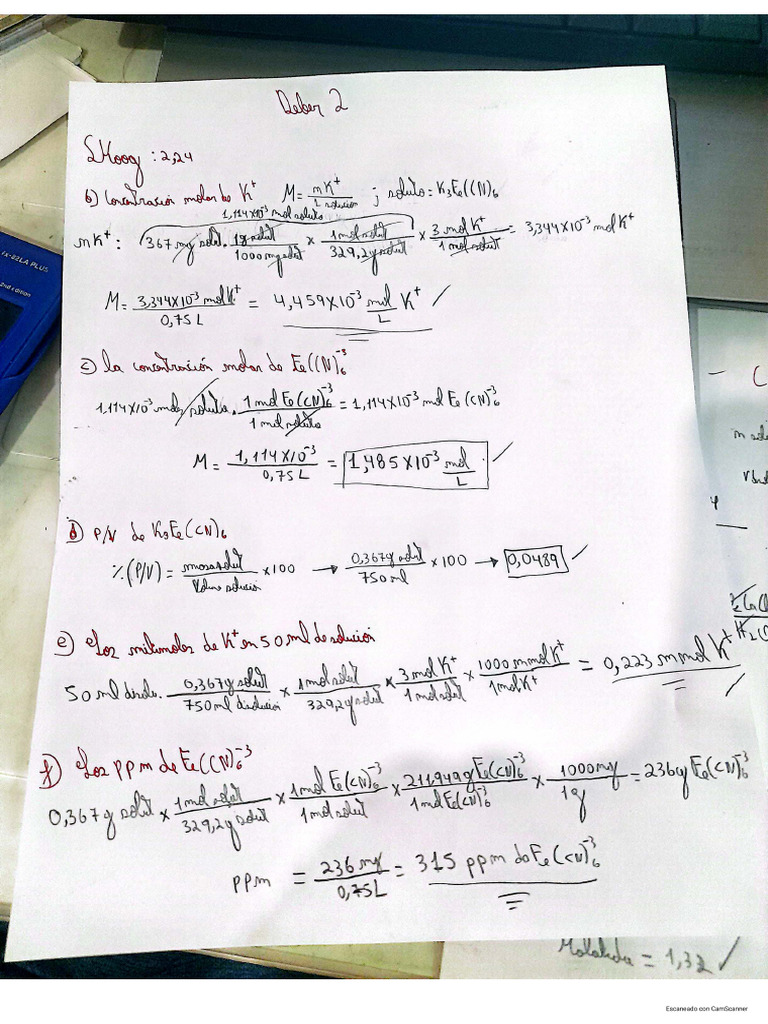 Deber 2
Skoog : 2,24
b) Concentración molar de K⁺ M = nK⁺ / 1 solución ; soluto = K3Fe(CN)6
1,114x10⁻³ mol soluto
nK⁺ : 367 mg solut. 1g solut / 1000 mg solut x 1 mol solut / 329,2g solut x 3 mol K⁺ / 1 mol solut = 3,344x10⁻³ mol K⁺
M = 3,344x10⁻³ mol K⁺ / 0,75 L = 4,459x10⁻³ mol / L K⁺ ✓
c) la concentración molar de Fe(CN)6⁻³
1,114x10⁻³ mol soluto . 1 mol Fe(CN)6⁻³ / 1 mol soluto = 1,114x10⁻³ mol Fe(CN)6⁻³
M = 1,114x10⁻³ / 0,75 L = 1,485x10⁻³ mol / L ✓
d) P/V de K3Fe(CN)6
% (P/V) = masa solut / Volumen solución x100 → 0,367g solut / 750 ml x 100 → 0,0489 ✓
e) Los milimoles de K⁺ en 50 ml de solución
50 ml disoluc. 0,367g solut / 750 ml disolución x 1 mol solut / 329,2g solut x 3 mol K⁺ / 1 mol solut x 1000 mmol K⁺ / 1 mol K⁺ = 0,223 mmol K⁺
f) Los ppm de Fe(CN)6⁻³
0,367g solut x 1 mol solut / 329,2g solut x 1 mol Fe(CN)6⁻³ / 1 mol solut x 211,949g Fe(CN)6⁻³ / 1 mol Fe(CN)6⁻³ x 1000 mg / 1g = 236g Fe(CN)6⁻³
ppm = 236 mg / 0,75 L = 315 ppm de Fe(CN)6⁻³
= 1,32 ✓
Escaneado con CamScanner